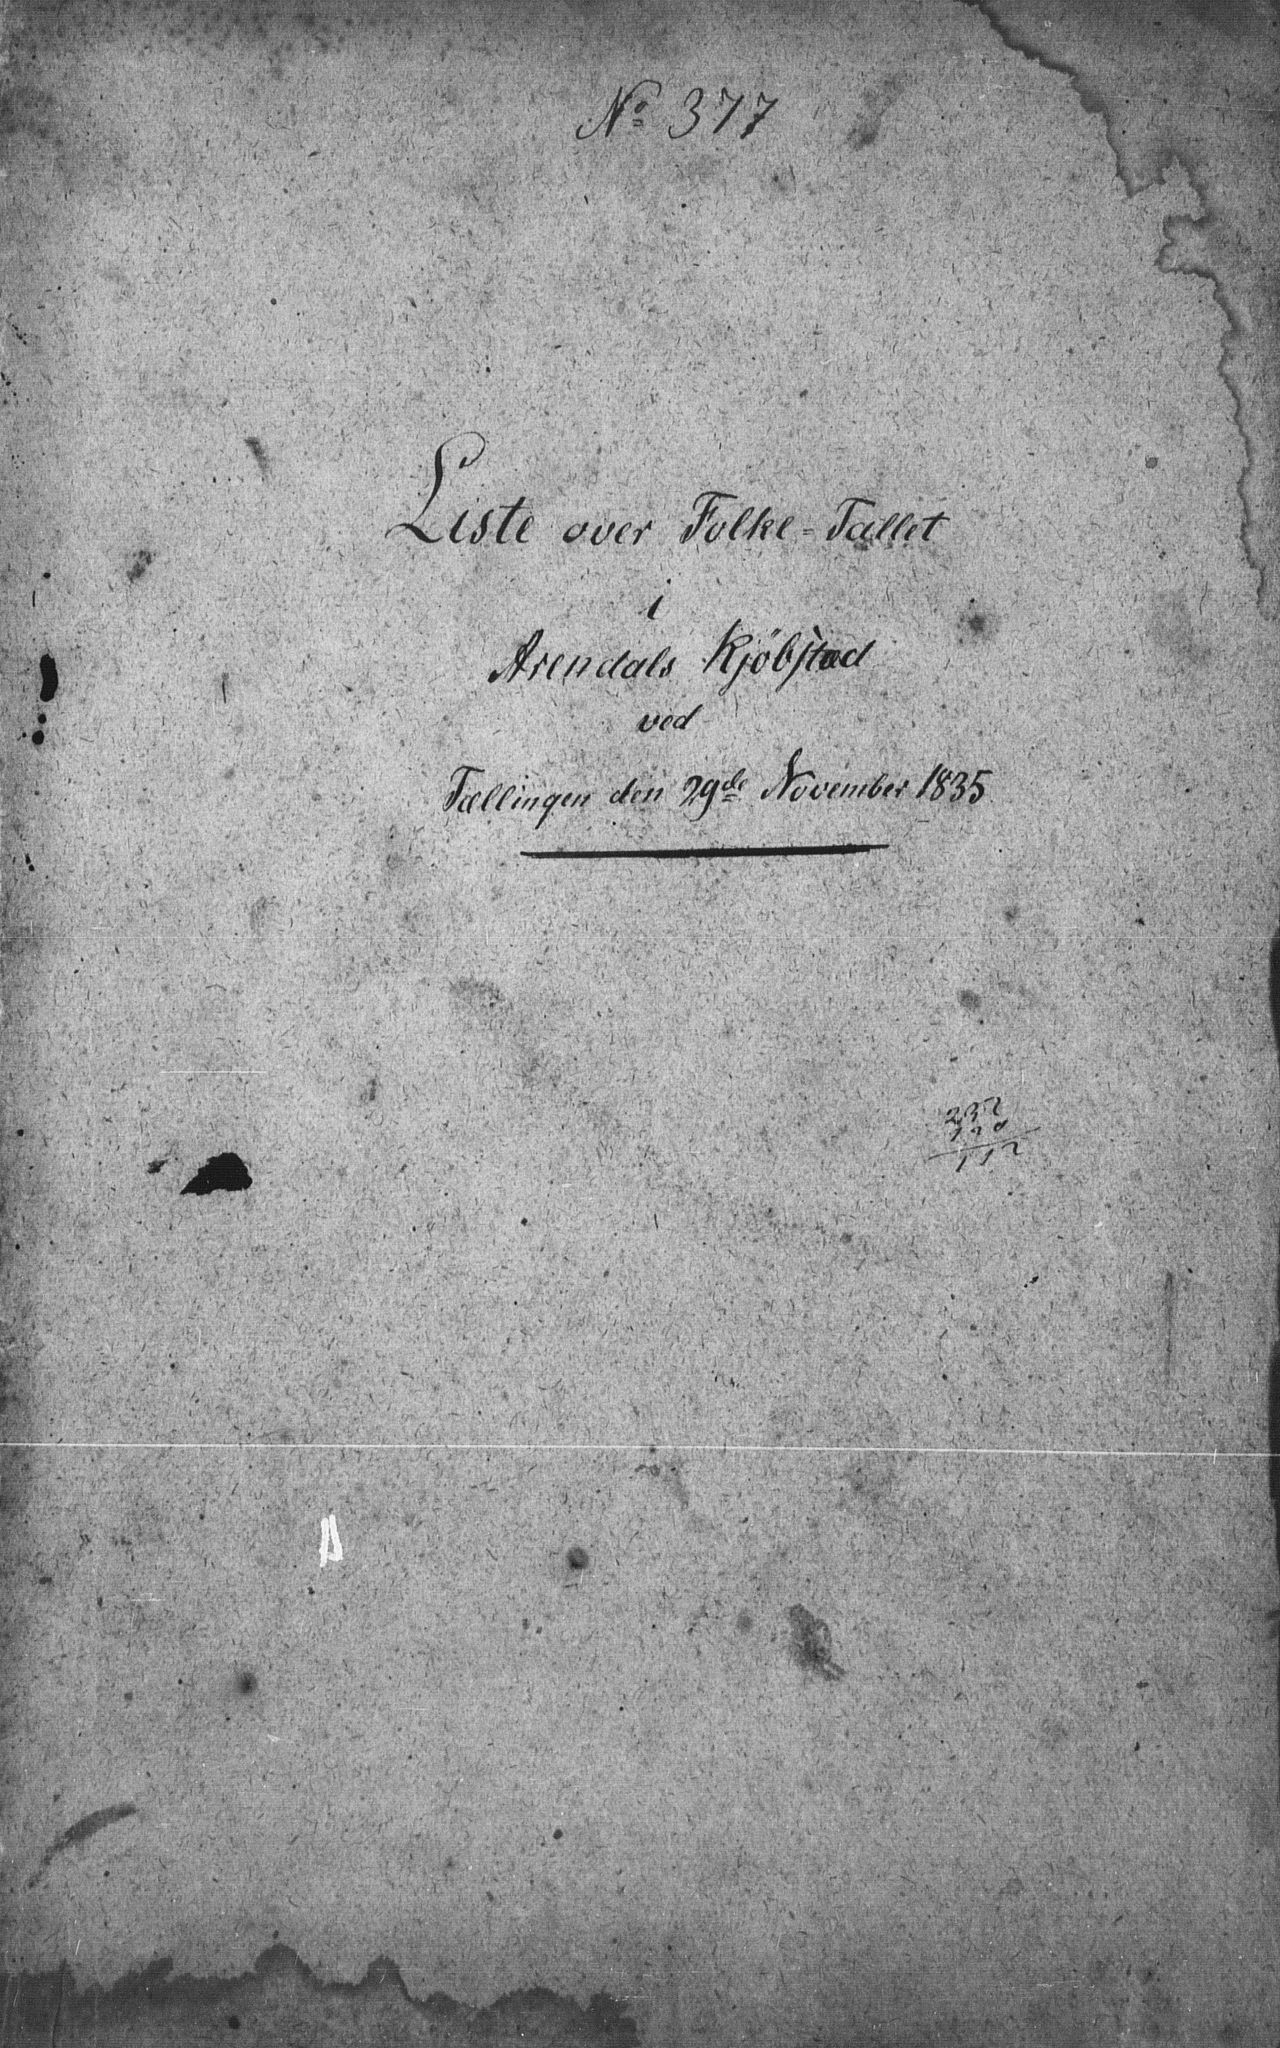 No 377
Liste over Folke-Tallet
i
Arendals Kjöbstad
ved
Tællingen den 29de November 1835
232
120
112